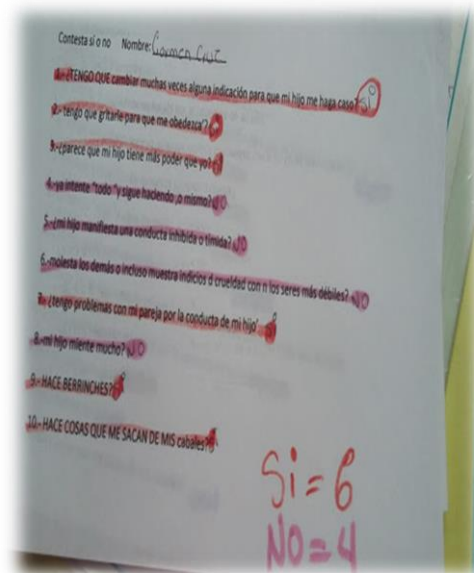 Contesta si o no Nombre: Carmen Cruz
1.- ¿TENGO QUE cambiar muchas veces alguna indicación para que mi hijo me haga caso? Si
2.- tengo que gritarle para que me obedezca'?
3.-¿parece que mi hijo tiene más poder que yo?
4.-yo intente "todo "y sigue haciendo ,o mismo? NO
5.-¿mi hijo manifiesta una conducta inhibida o tímida? NO
6.-molesta los demás o incluso muestra indicios d crueldad con n los seres más débiles? NO
7.- ¿tengo problemas con mi pareja por la conducta de mi hijo'
8.-mi hijo miente mucho? NO
9.- HACE BERRINCHES?
10.- HACE COSAS QUE ME SACAN DE MIS cabales?
Si = 6
NO = 4